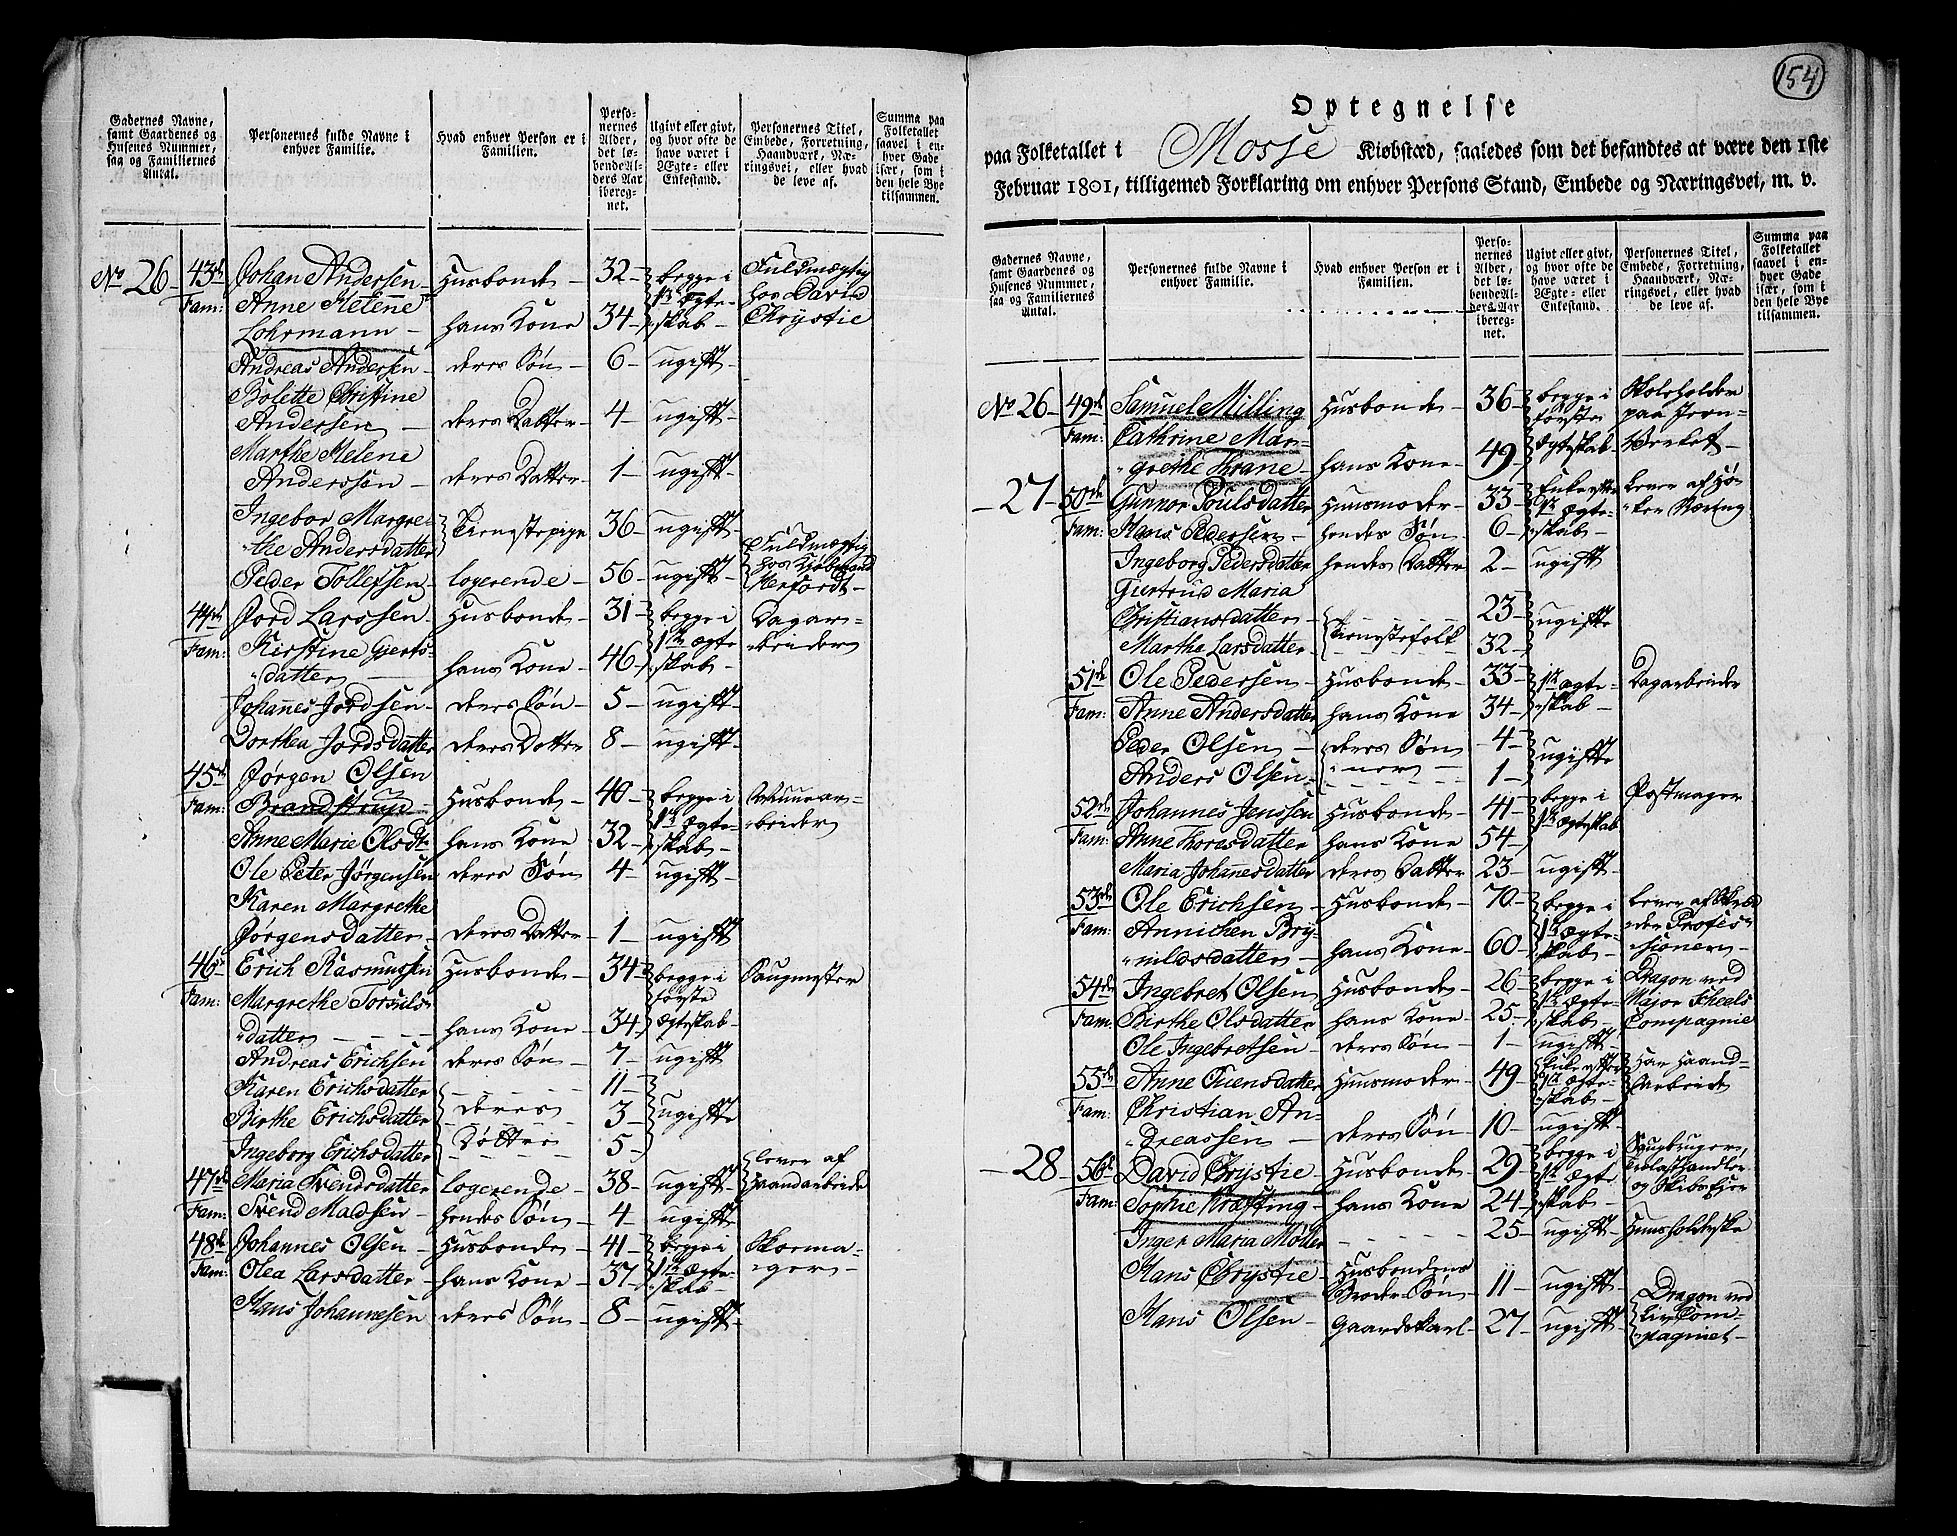 Gadernes Navne, samt Gaardenes og Husenes Nummer, saa og Familiernes Antal.
Personernes fulde Navne i enhver Familie.
Hvad enhver Person er i Familien.
Personernes Alder, det løbende Alders Aar iberegnet.
Ugivt eller givt, og hvor ofte de have været i Ægte- eller Enkestand.
Personernes Titel, Embede, Forretning, Haandværk, Næringsvei, eller hvad de leve af.
Summa paa Folketallet saavel i enhver Gade især, som i den hele Bye tilsammen.
No 26 - 43de Fam: Johan Andersen - Husbonde - 32 - begge i 1ste Ægteskab - Fuldmægtig hos David Chrystie
Anne Helene Lohrmann - hans Kone 34 -
Andreas Andersen - deres Søn - 6 - ugift -
Bolette Christine Andersen - deres Datter - 4 - ugift -
Marthe Helene Anderssen - deres Datter - 1 - ugift -
Ingebor Margrethe Andersdatter Tienestepige 36 - ugift -
Peder Tollefssen - logerende - 56 - ugift - Fuldmægtig hos Kjøbmand Herfordt -
44de Fam: Jord Larssen - Husbonde - 31 - begge i 1ste Ægteskab - Dagarbeider
Kirstine Gjertsdatter - hans Kone - 46
Johannes Jordsen - deres Søn - 5 - ugift -
Dorthea Jordsdatter deres Datter 8 - ugift -
45de Fam: Jørgen Olsen Brandstrup - Husbonde - 40 - begge i 1ste Ægteskab -
Anne Marie Olsdt: hans Kone 32 -
Ole Peter Jørgensen deres Søn 4 - ugift -
Karen Margrethe Jørgensdatter - deres Datter - 1 - ugift
46de Fam: Erich Rasmussen Husbonde - 34 - begge i første Ægteskab - Saugmester
Margrethe datter - hans Kone - 34
Andreas Erichsen deres Søn - 7 - ugift
Karen Erichsdatter 11 -
Birthe Erichsdatter deres Døttre 3 - ugifte
Ingeborg Erichsdatter 5 -
47de Fam: Maria Svendsdatter logerende - 38 - ugift - lever af Haandarbeide
Svend Madsen - hendes Søn - 4 - ugift
48de Fam: Johannes Olsen - Husbonde - 41 - begge i 1ste Ægteskab - Skoemager -
Olea Larsdatter - hans Kone - 37 -
Hans Johannesen deres Søn - 8 - ugift -
154
Optegnelse
paa Folketallet i Mosse Kiøbstæd, saaledes som det befandtes at være den 1ste
Februar 1801, tilligemed Forklaring om enhver Persons Stand, Embede og Næringsvei, m. v.
Gadernes Navne, samt Gaardenes og Husenes Nummer, saa og Familiernes Antal
Personernes fulde Navne i enhver Familie.
Hvad enhver Person er i Familien.
Personernes Alder, det løbende Alders Aar iberegnet.
Ugivt eller givt, og hvor ofte de have været i Ægte- eller Enkestand.
Personernes Titel, Embede, Forretning, Haandværk, Næringsvei, eller hvad de leve af.
Summa paa Folketallet saavel i enhver Gade især, som i den hele Bye tilsammen.
No 26 - 49de Fam: Samuel Milling Husbonde - 36 - begge i første Ægteskab - Skoleholder paa Jern-Verket -
Cathrine Margrethe Krane - hans Kone - 49 -
- 27 - 50de Fam: Gunnor Poulsdatter Huusmoder - 33 - Enke efter 1ste Ægteskab - Lever af Høker Næring
Hans Pedersen - hendes Søn - 6 -
Ingeborg Pedersdatter hendes Datter 2 - ugift
Giertrud Maria Christiansdatter - Tienestefolk 23 - ugifte
Marthe Larsdatter 32 -
51de Fam: Ole Pedersen - Husbonde - 33 - 1ste Ægteskab - Dagarbeider
Anne Andersdatter hans Kone - 34 -
Peder Olsen - deres Sønner 4 - ugifte
Anders Olsen - 1 -
52de Fam: Johannes Jenssen Husbonde - 41 - begge i 1ste Ægteskab Postmager
Anne Thoresdatter hans Kone 54 -
Maria Johannesdatter deres Datter 23 - ugift -
53de Fam: Ole Erichsen - Husbonde - 70 - begge i 1ste Ægteskab - lever af Skrædder Professionen -
Annichen datter - hans Kone - 60 -
54de Fam: Ingebret Olsen Husbonde - 26 - begge i 1ste Ægteskab - Dragon ved Major Scheels Compagnie
Birthe Olsdatter hans Kone - 25 -
Ole Ingebretsen - deres Søn - 1 - ugift -
55de Fam: Anne Suensdatter Huusmoder - 49 - Enke efter 1ste Ægteskab - Har Haand-Arbeide
Christian Andreassen - deres Søn 10 - ugift -
- 28 - 56de Fam: David Chrystie - Husbonde 29 - begge i 1ste Ægteskab - Saugbruger, Trelasthandler og Skibs Ejer
Sophie Kræfting - hans Kone 24 -
Inger Maria Møller - 25 - ugift - Huusholderske
Hans Chrystie - Husbondens Broder Søn - 11 - ugift -
Hans Olsen - Gaardskarl - 27 - ugift - Dragon ved Liv Compagniet -